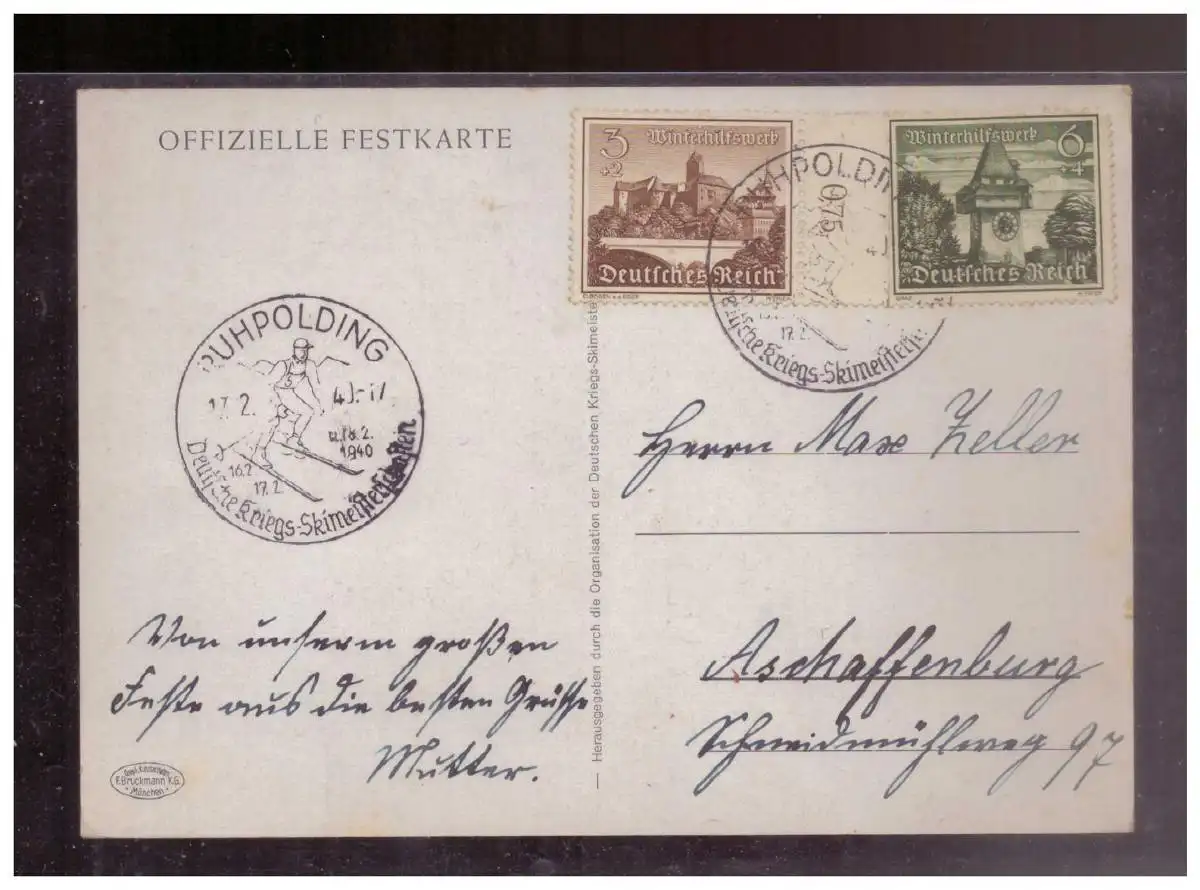 OFFIZIELLE FESTKARTE
3
+2
Winterhilfswerk
Deutsches Reich
0,75
6
+4
Winterhilfswerk
Deutsches Reich
GRAZ
RUHPOLDING
17.2.
Deutsche Kriegs-Skimeisterschaften
RUHPOLDING
17.2. 40.-17
16.2.
17.2.
u.18.2.
1940
Deutsche Kriegs-Skimeisterschaften
Herausgegeben durch die Organisation der Deutschen Kriegs-Skimeister
Herrn Max Zeller
Aschaffenburg
Schneidmühlweg 97
Von unserm großen
Feste aus die besten Grüße
Mutter.
F. Bruckmann K.G.
München